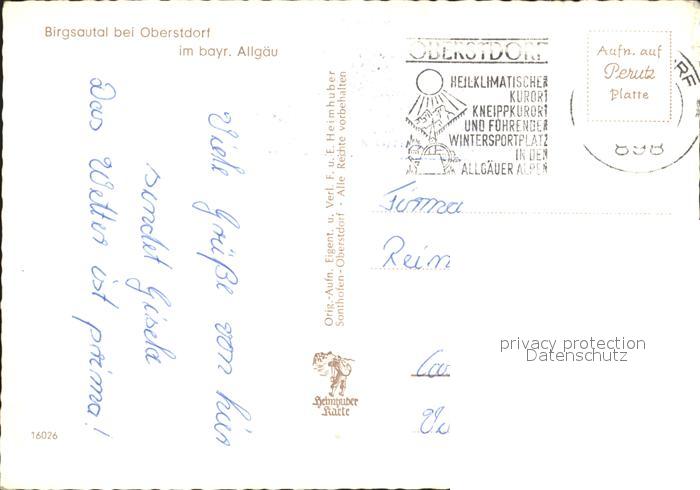 Birgsautal bei Oberstdorf
im bayr. Allgäu
Viele Grüße von hier
sendet Gisela
Das Wetter ist prima!
16026
Orig.-Aufn. Eigent. u. Verl. F. u. E. Heimhuber
Sonthofen-Oberstdorf - Alle Rechte vorbehalten
Heimhuber
Karte
OBERSTDORF
HEILKLIMATISCHER
KURORT
KNEIPPKURORT
UND FÜHRENDER
WINTERSPORTPLATZ
IN DEN
ALLGÄUER ALPEN
Aufn. auf
Perutz
Platte
898
Firma
Rein
privacy protection
Datenschutz